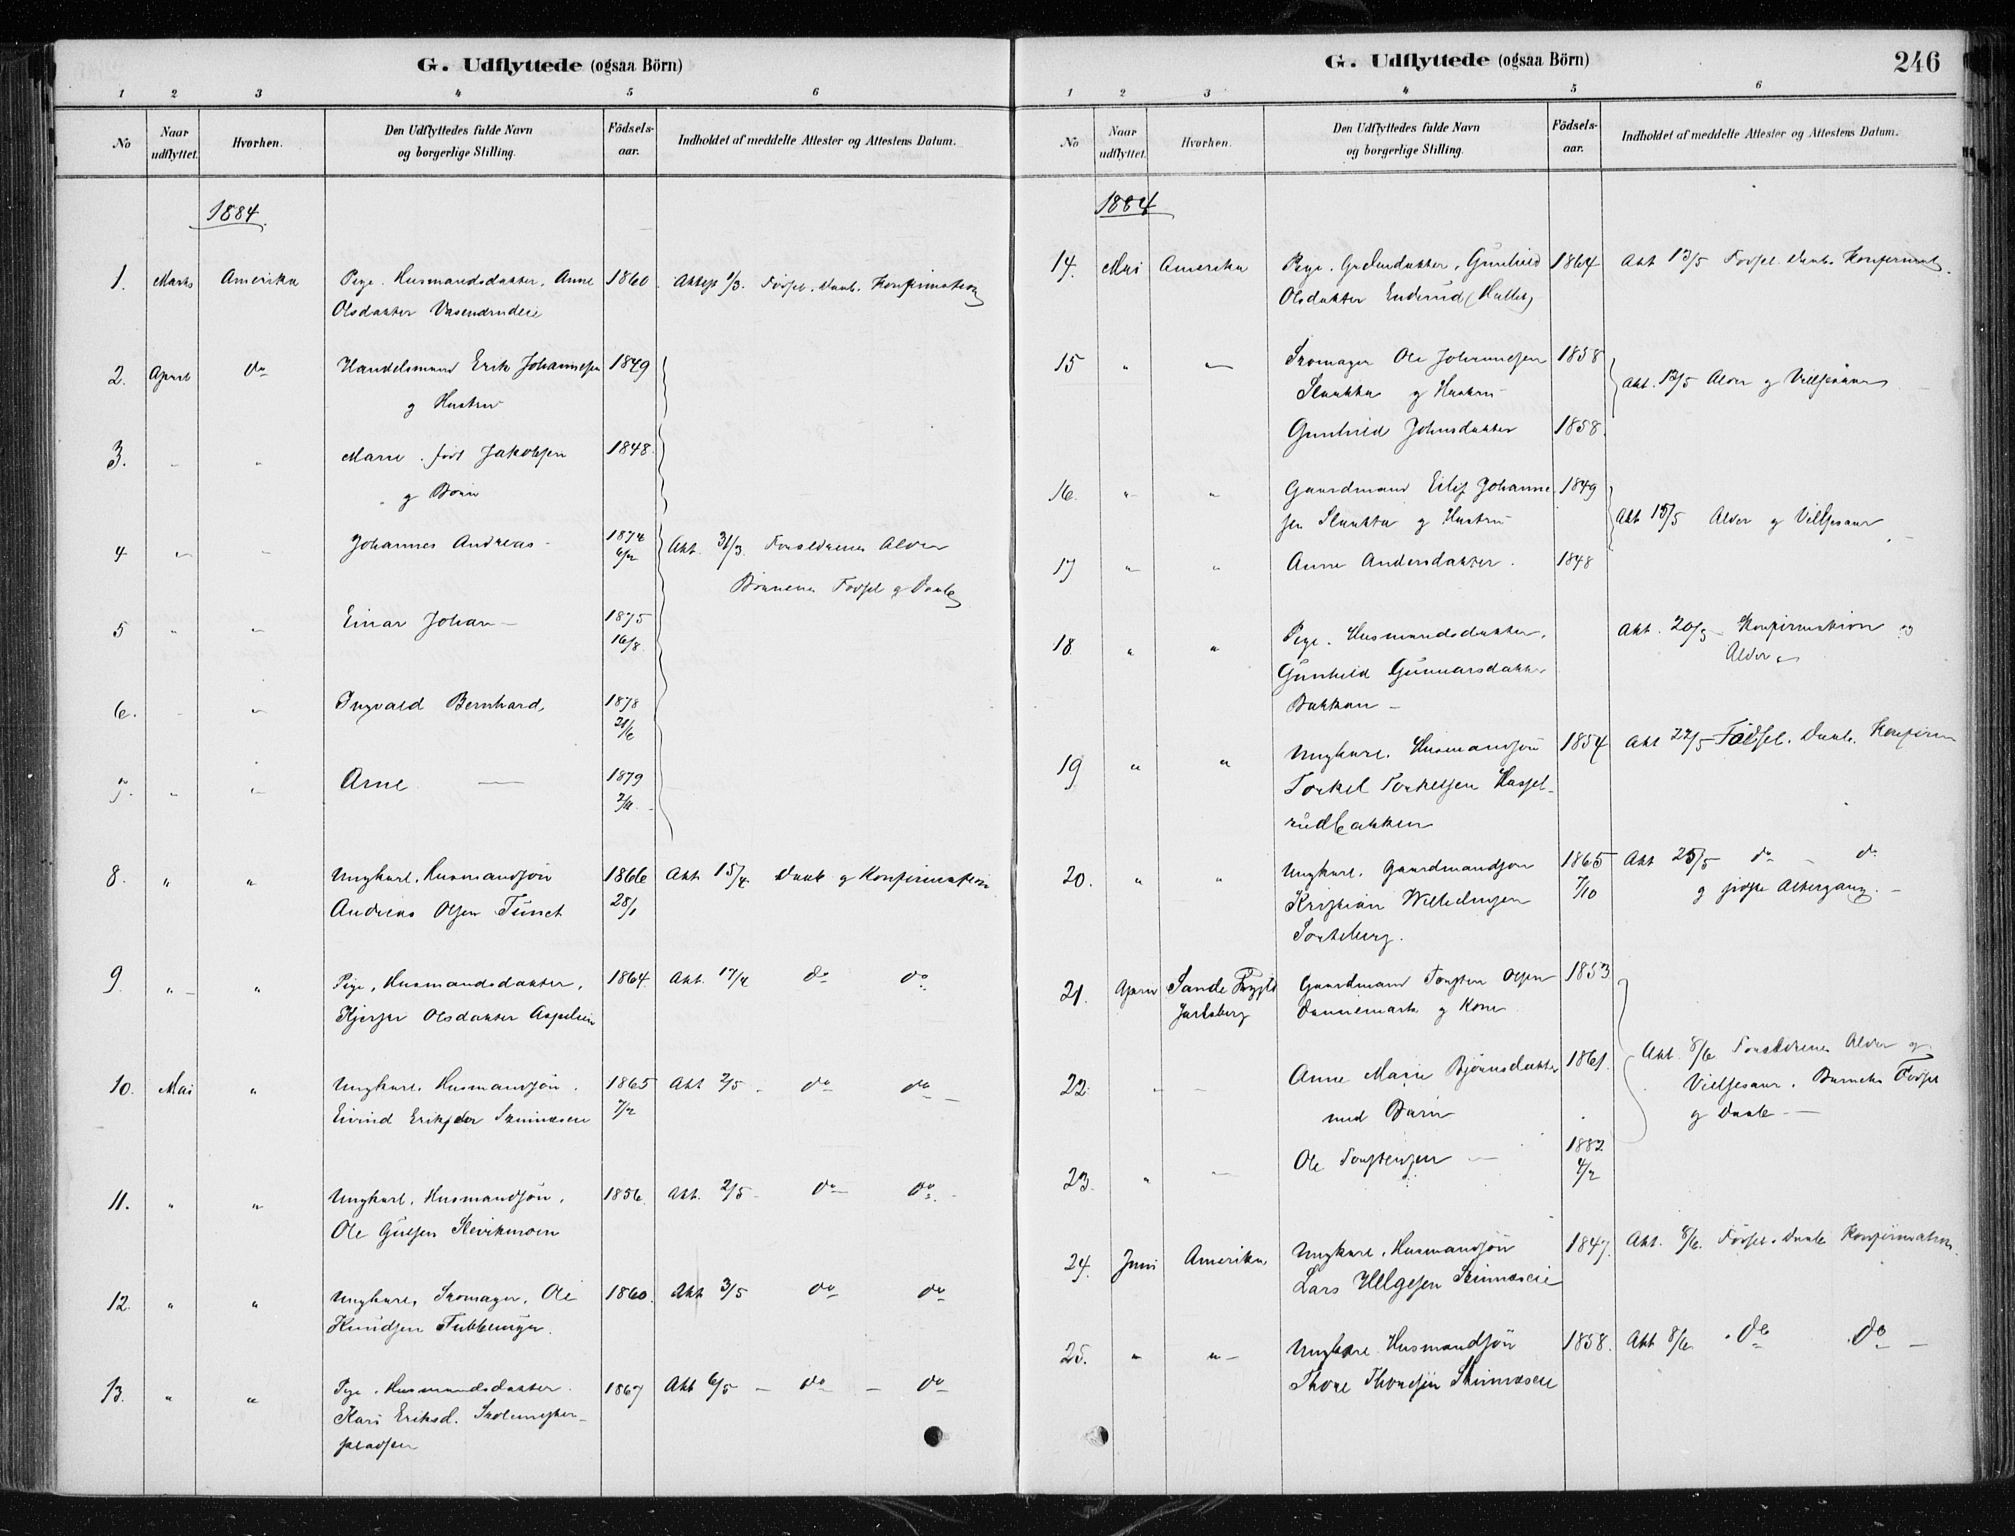 G. Udflyttede (ogsaa Börn)
1 2 3 4 5 6
No Naar udflyttet. Hvorhen. Den Udflyttedes fulde Navn og borgerlige Stilling. Födsels-aar. Indholdet af meddelte Attester og Attestens Datum.
1884.
1. Marts Amerika Pige. Husmandsdatter, Anne 1860 1/3. Fødsel, Daab, Konfirmation
Olsdatter
2. April do Handelsmand Erik Johannesen 1849
og Hustru
3. " " Marie født Jakobsen 1848.
og Børn
4 " " Johannes Andreas - 1874 Att. 31/3. Forældrenes Alder
6/12 Børnenes Fødsel og Daab
5 " " Einar Johan - 1875
16/8.
6. " " Ingvald Bernhard, 1878
21/6
7. " " Arne - 1879
8. " " Ungkarl, Husmandsøn 1866 Att. 15/4. Daab og Konfirmation
Andreas Olsen Tunet 28/1
9. " " Pige, Husmandsdatter, 1864. Att. 17/4 do do
Olsdatter Aspelien
10. Mai " Ungkarl, Husmandsøn. 1865 Att 2/5 - do do -
Eivind Eriksen 7/2
11. " " Ungkarl, Husmandsøn, 1856. Att. 2/5 - do - do -
Ole Gulsen
12. " " Ungkarl, Skomager, Ole 1860. Att 3/5 do do
Knudsen
13. " " Pige, Husmandsdatter. 1867 Att 6/5 - do - do
Kari Eriksd.
pladsen
246
G. Udflyttede (ogsaa Börn)
1 2 3 4 5 6
No Naar udflyttet. Hvorhen. Den Udflyttedes fulde Navn og borgerlige Stilling. Födsels-aar. Indholdet af meddelte Attester og Attestens Datum.
1884
14. Mai Amerika Pige. Gunhild 1864 Att 13/5 Fødsel Daab Konfirmat.
Olsdatter Enderud
15 " " Skomager Ole Johannesen 1858
Slaatta og Hustru Att. 13/5 Alder og Vielsesaar
Gunhild Johnsdatter 1858.
16. " " Gaardmand Eilif Johanne- 1849
sen Slaatta og Hustru Att 15/5 Alder og Vielsesaar
17 " " Anne Andersdatter. 1848
18 " " Pige. Husmandsdatter, Att. 20/5 - Konfirmation og
Gunhild Gunnarsdatter Alder
Bakken -
19 " " Ungkarl, Husmandsøn 1854 Att 22/5 - Fødsel, Daab, Konfirm
Torkel Torkelsen Hassel-
rudbakken
20. " " Ungkarl, Gaardmandsøn 1865 Att 25/5 do - do
Kristian 7/10 og sidste Altergang. -
Sorteberg.
21. April Sande Jarlsberg Gaardmand Torsten Olsen 1853
og Kone
22. " " Anne Marie Bjørnsdatter 1861. Att. 8/6 Forældrenes Alder og
med Barn Vielsesaar, Barnets Fødsel
og Daab -
23. " " Ole Torstensen - 1882
4/2
24. Juni Amerika Ungkarl, Husmandsøn 1847. Att. 8/6. Fødsel, Daab Konfirmation.
Lars Helgesen
25. " " - Ungkarl Husmandsøn 1858. Att 8/6. do do -
Thore Thoresen